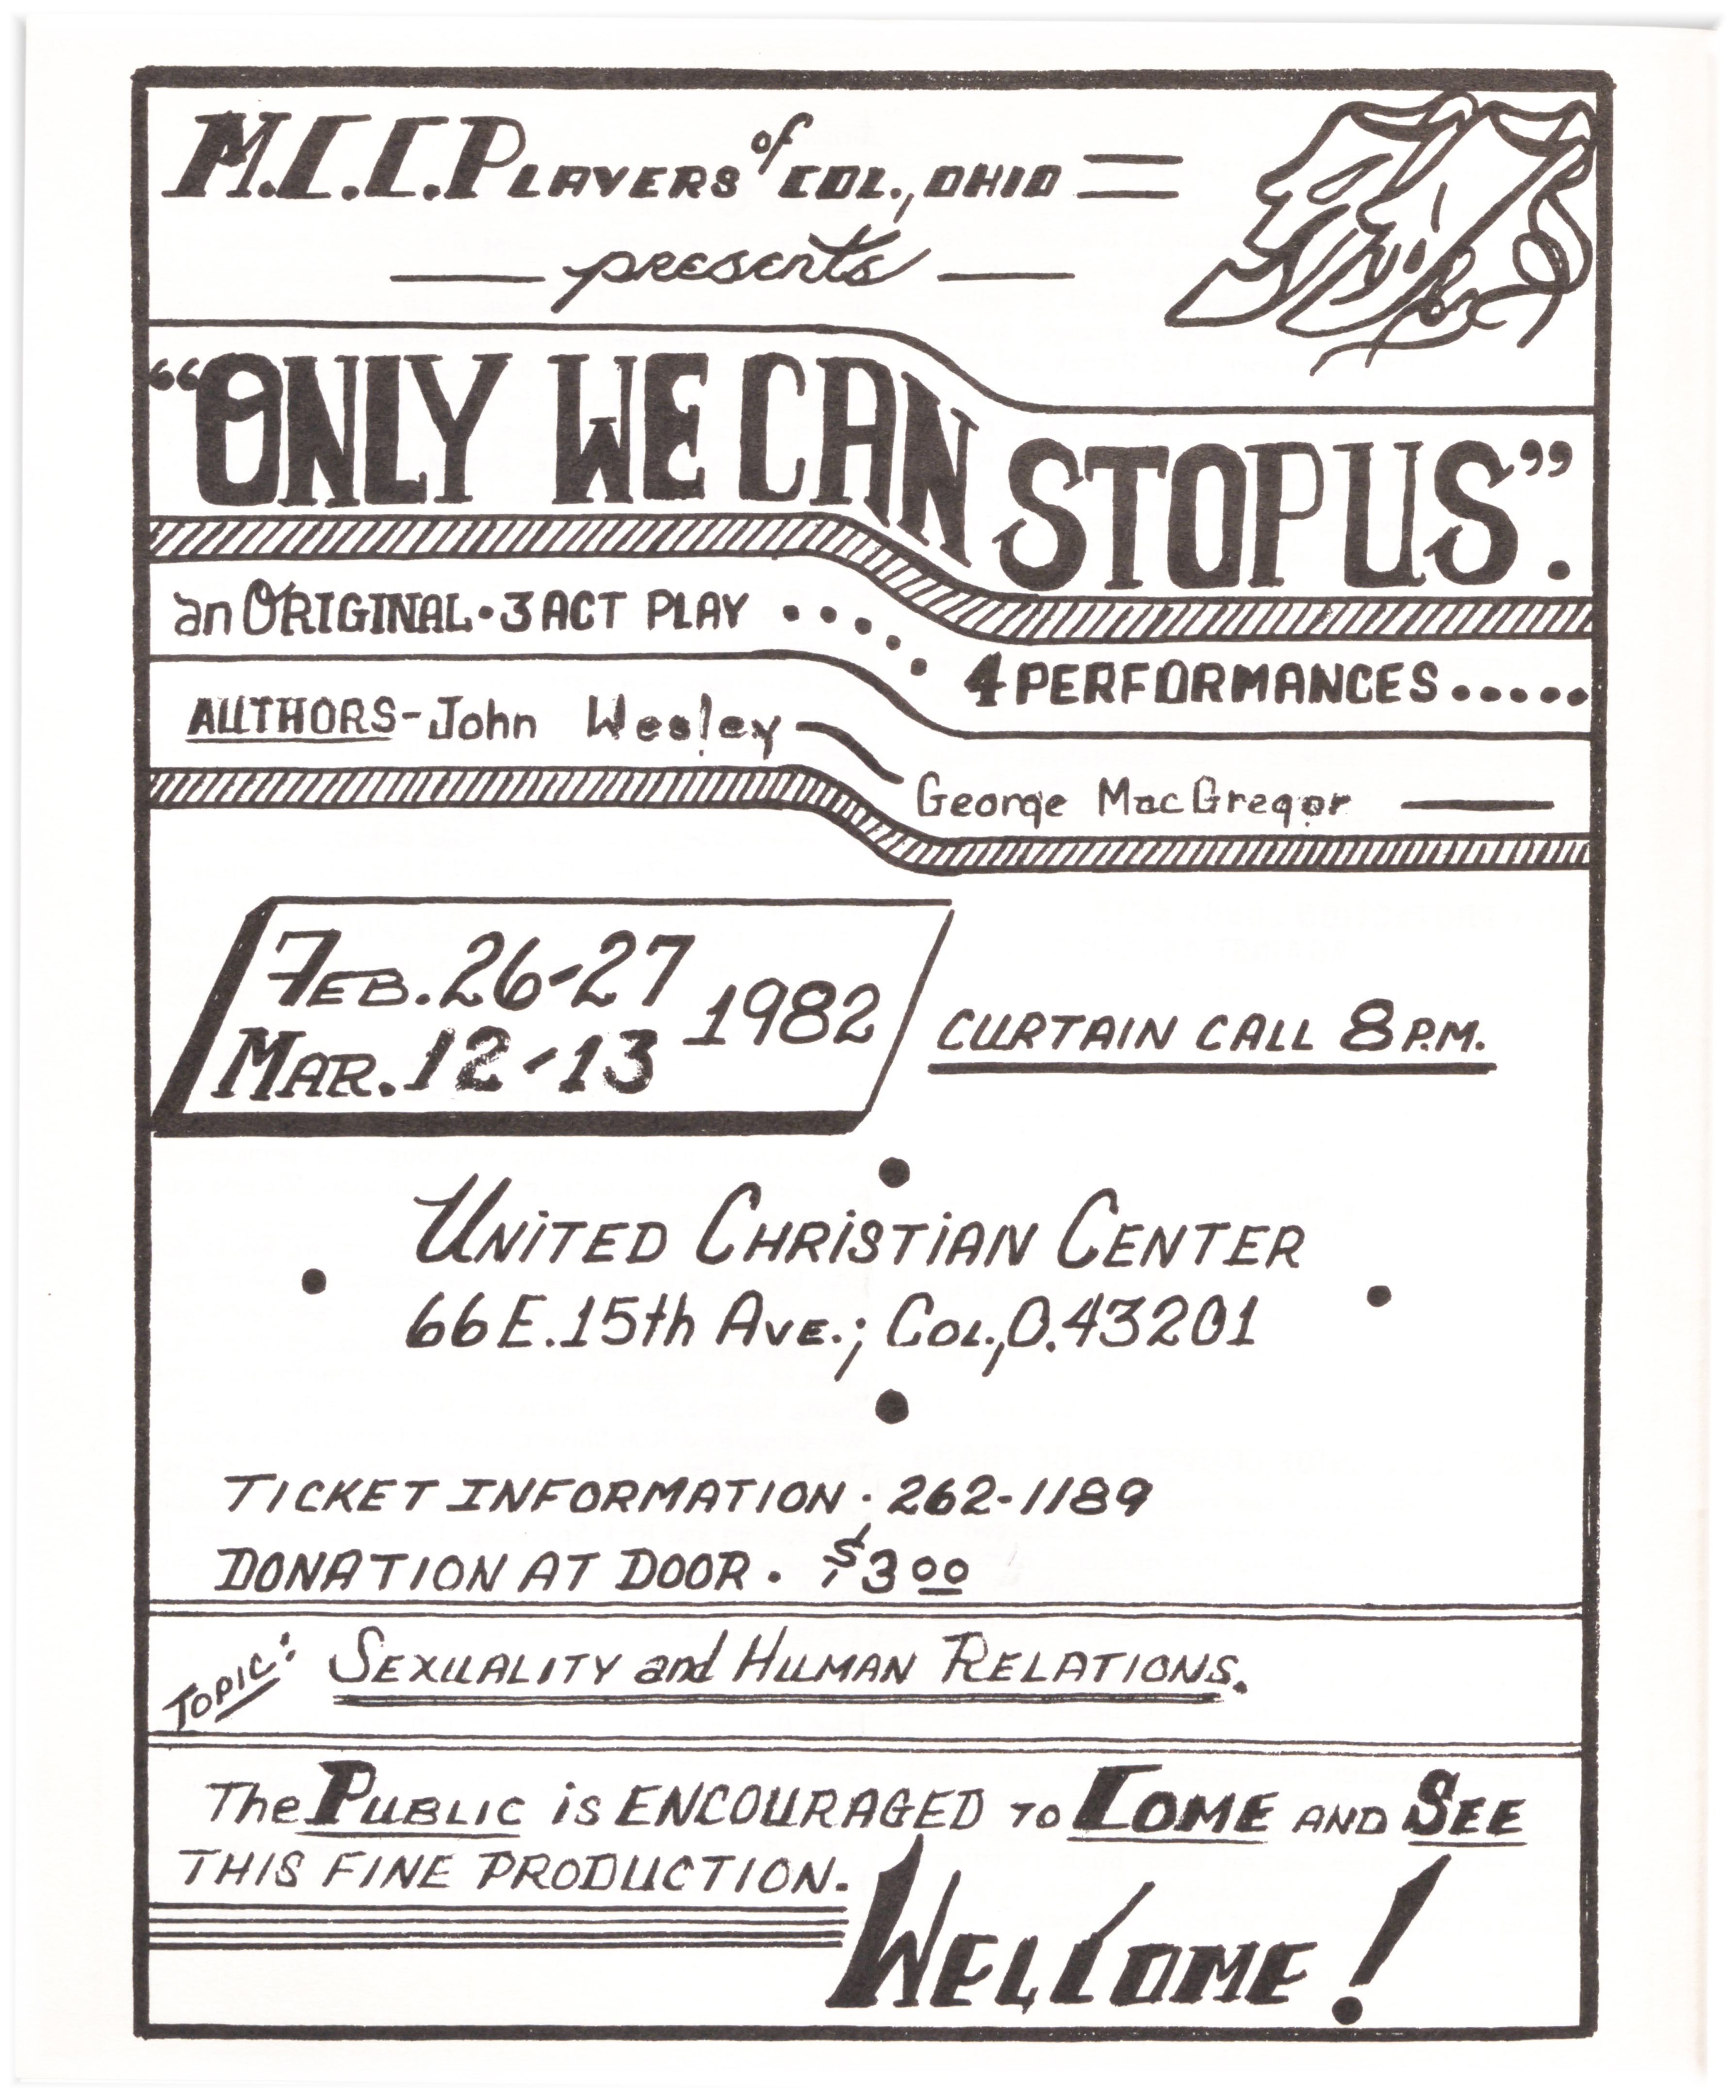 M.C.C. PLAYERS of COL., OHIO
presents
"ONLY WE CAN STOP US".
an ORIGINAL • 3 ACT PLAY .....
4 PERFORMANCES.....
AUTHORS - John Wesley —
George MacGregor —
FEB. 26-27
MAR. 12-13 1982
CURTAIN CALL 8 P.M.
UNiTED CHRiSTiAN CENTER
66 E. 15th AVE.; COL., O. 43201
TICKET INFORMATION · 262-1189
DONATION AT DOOR. $3 00
TOPIC: SEXUALITY and HUMAN RELATIONS.
The PUBLIC is ENCOURAGED TO COME AND SEE
THIS FINE PRODUCTION.
WELCOME!